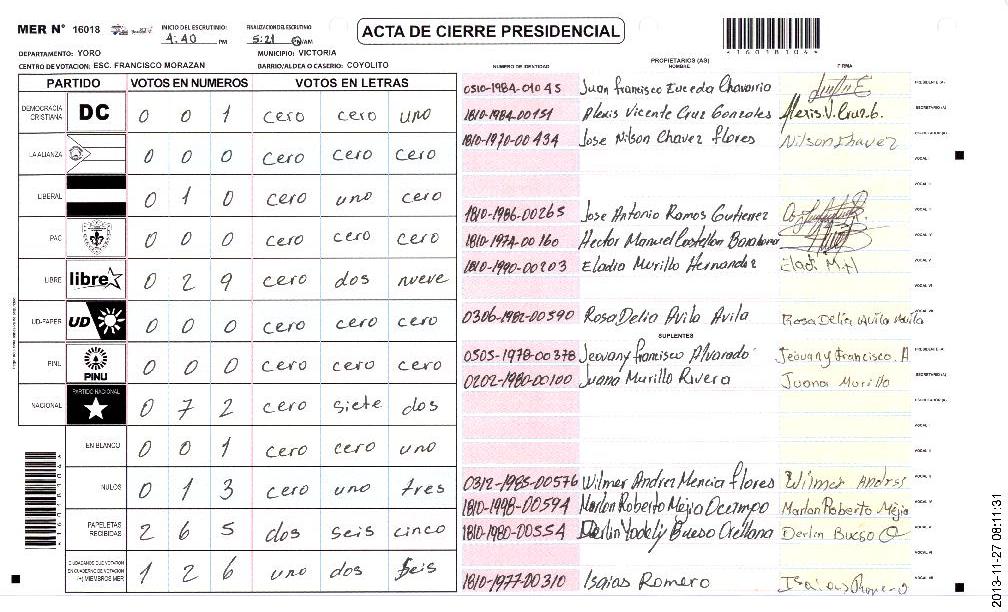 MER N° 16018
INICIO DEL ESCRUTINIO:
4:40 PM
FINALIZACION DEL ESCRUTINIO
5:21
ACTA DE CIERRE PRESIDENCIAL
DEPARTAMENTO: YORO
MUNICIPIO: VICTORIA
CENTRO DE VOTACION: ESC. FRANCISCO MORAZAN
BARRIO/ALDEA O CASERIO: COYOLITO
PARTIDO VOTOS EN NUMEROS VOTOS EN LETRAS
DEMOCRACIA CRISTIANA DC 0 0 1 cero cero uno
LA ALIANZA 0 0 0 cero cero cero
LIBERAL 0 1 0 cero uno cero
PAC 0 0 0 cero cero cero
LIBRE libre 0 2 9 cero dos nueve
UD-FAPER UD 0 0 0 cero cero cero
PINU PINU 0 0 0 cero cero cero
NACIONAL PARTIDO NACIONAL 0 7 2 cero siete dos
EN BLANCO 0 0 1 cero cero uno
NULOS 0 1 3 cero uno tres
PAPELETAS RECIBIDAS 2 6 5 dos seis cinco
CIUDADANOS QUE VOTARON EN CUADERNO DE VOTACION (+) MIEMBROS MER 1 2 6 uno dos seis
*16018104*
NUMERO DE IDENTIDAD
PROPIETARIOS (AS)
NOMBRE
FIRMA
0510-1984-01045 Juan francisco Euceda Chavarria PRESIDENTE (A)
1810-1984-00151 Alexis Vicente Cruz Gonzales Alexis.V.Cruz.G. SECRETARIO (A)
1810-1970-00434 Jose Nilson Chavez flores Nilson Chavez ESCRUTADOR (A)
VOCAL I
VOCAL II
1810-1986-00265 Jose Antonio Ramos Gutierrez
1810-1974-00160 Hector Manuel Castellon Barahona VOCAL IV
1810-1990-00203 Eladio Murillo Hernandez Eladi M.H VOCAL V
VOCAL VI
0306-1982-00590 Rosa Delia Avila Avila Rosa Delia Avila Avila
SUPLENTES
0505-1978-00378 Jeovany francisco Alvarado Jeovany Francisco. A PRESIDENTE (A)
0202-1980-00100 Juana Murillo Rivera Juana Murillo SECRETARIO (A)
ESCRUTADOR (A)
VOCAL I
VOCAL II
0312-1985-00576 Wilmer Andres Mencia flores Wilmer Andres
1810-1998-00594 Marlon Roberto Mejia Ocampo Marlon Roberto Mejia
1810-1980-00554 Derlin Yodely Bueso Orellana Derlin Bueso O
VOCAL VI
1810-1977-00310 Isaias Romero Isaias Romero
*16018104*
2013-11-27 08:11:31